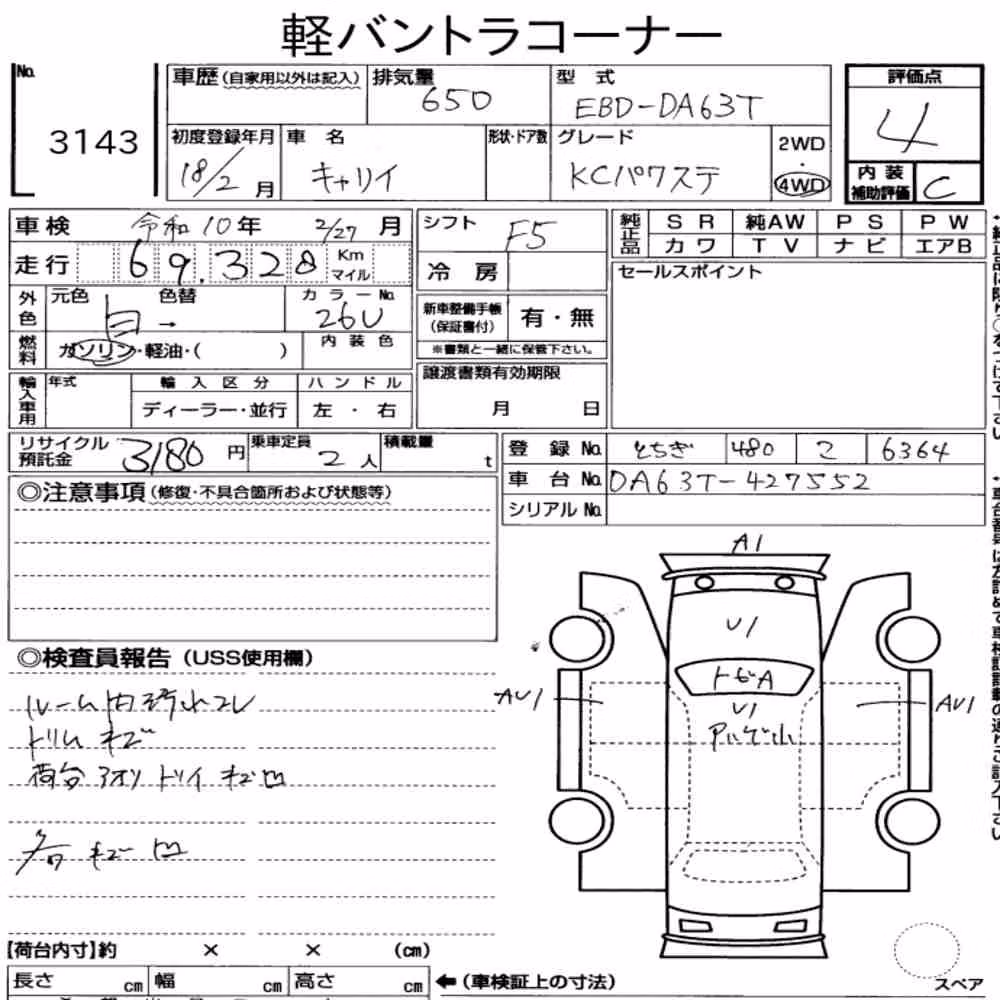 軽バントラコーナー
No. 3143
車歴(自家用以外は記入) 排気量 650 型式 EBD-DA63T
評価点 4
初度登録年月 18/2月 車名 キャリイ 形状・ドア数 グレード KCパワステ 2WD・4WD
内装補助評価 C
車検 令和10年 2/27月 シフト F5 純正品 SR 純AW PS PW
カワ TV ナビ エアB
走行 69.328 Km マイル 冷房
セールスポイント
外色 元色 白 → 色替 カラーNo. 26U
新車整備手帳(保証書付) 有・無
※書類と一緒に保管下さい。
燃料 ガソリン・軽油・( ) 内装色
輸入車用 年式 輸入区分 ハンドル
ディーラー・並行 左・右
譲渡書類有効期限
月 日
リサイクル預託金 3180円 乗車定員 2人 積載量 t
登録No. とちぎ 480 2 6364
車台No. DA63T-427552
シリアルNo.
◎注意事項(修復・不具合箇所および状態等)
◎検査員報告(USS使用欄)
ルーム内汚れコレ
トリムキズ
荷台アオリトリイキズ凹
各キズ凹
A1
U1
トビA
U1
AU1
AU1
【荷台内寸】約 × × (cm)
長さ cm 幅 cm 高さ cm
←(車検証上の寸法)
スペア